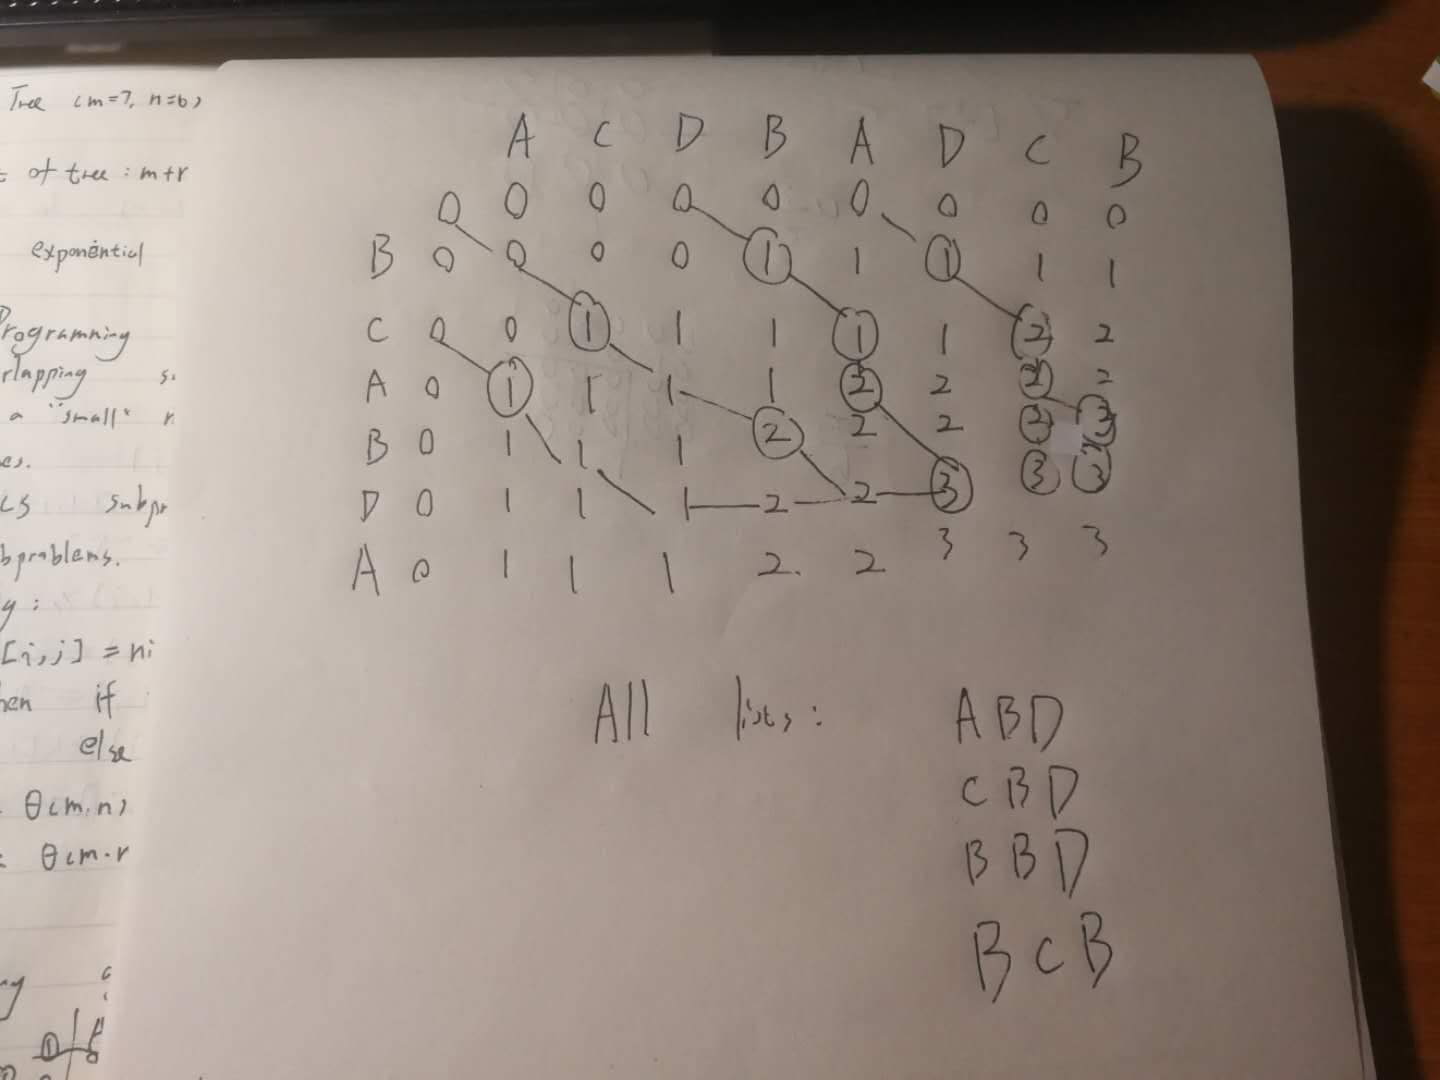 Tree (m=7, n=6)
of tree : m+r
exponential
Programming
rlapping s
a "small" r
es.
LCS subpr
bproblems.
y :
[i,j] = ni
hen if
else
θ(m,n)
θ(m·r
A C D B A D C B
0 0 0 0 0 0 0 0 0
B 0 0 0 0 1 1 1 1 1
C 0 0 1 1 1 1 1 2 2
A 0 1 1 1 1 2 2 2 2
B 0 1 1 1 2 2 2 2 3
D 0 1 1 1 2 2 3 3 3
A 0 1 1 1 2. 2 3 3 3
All lists : ABD
CBD
BBD
BCB